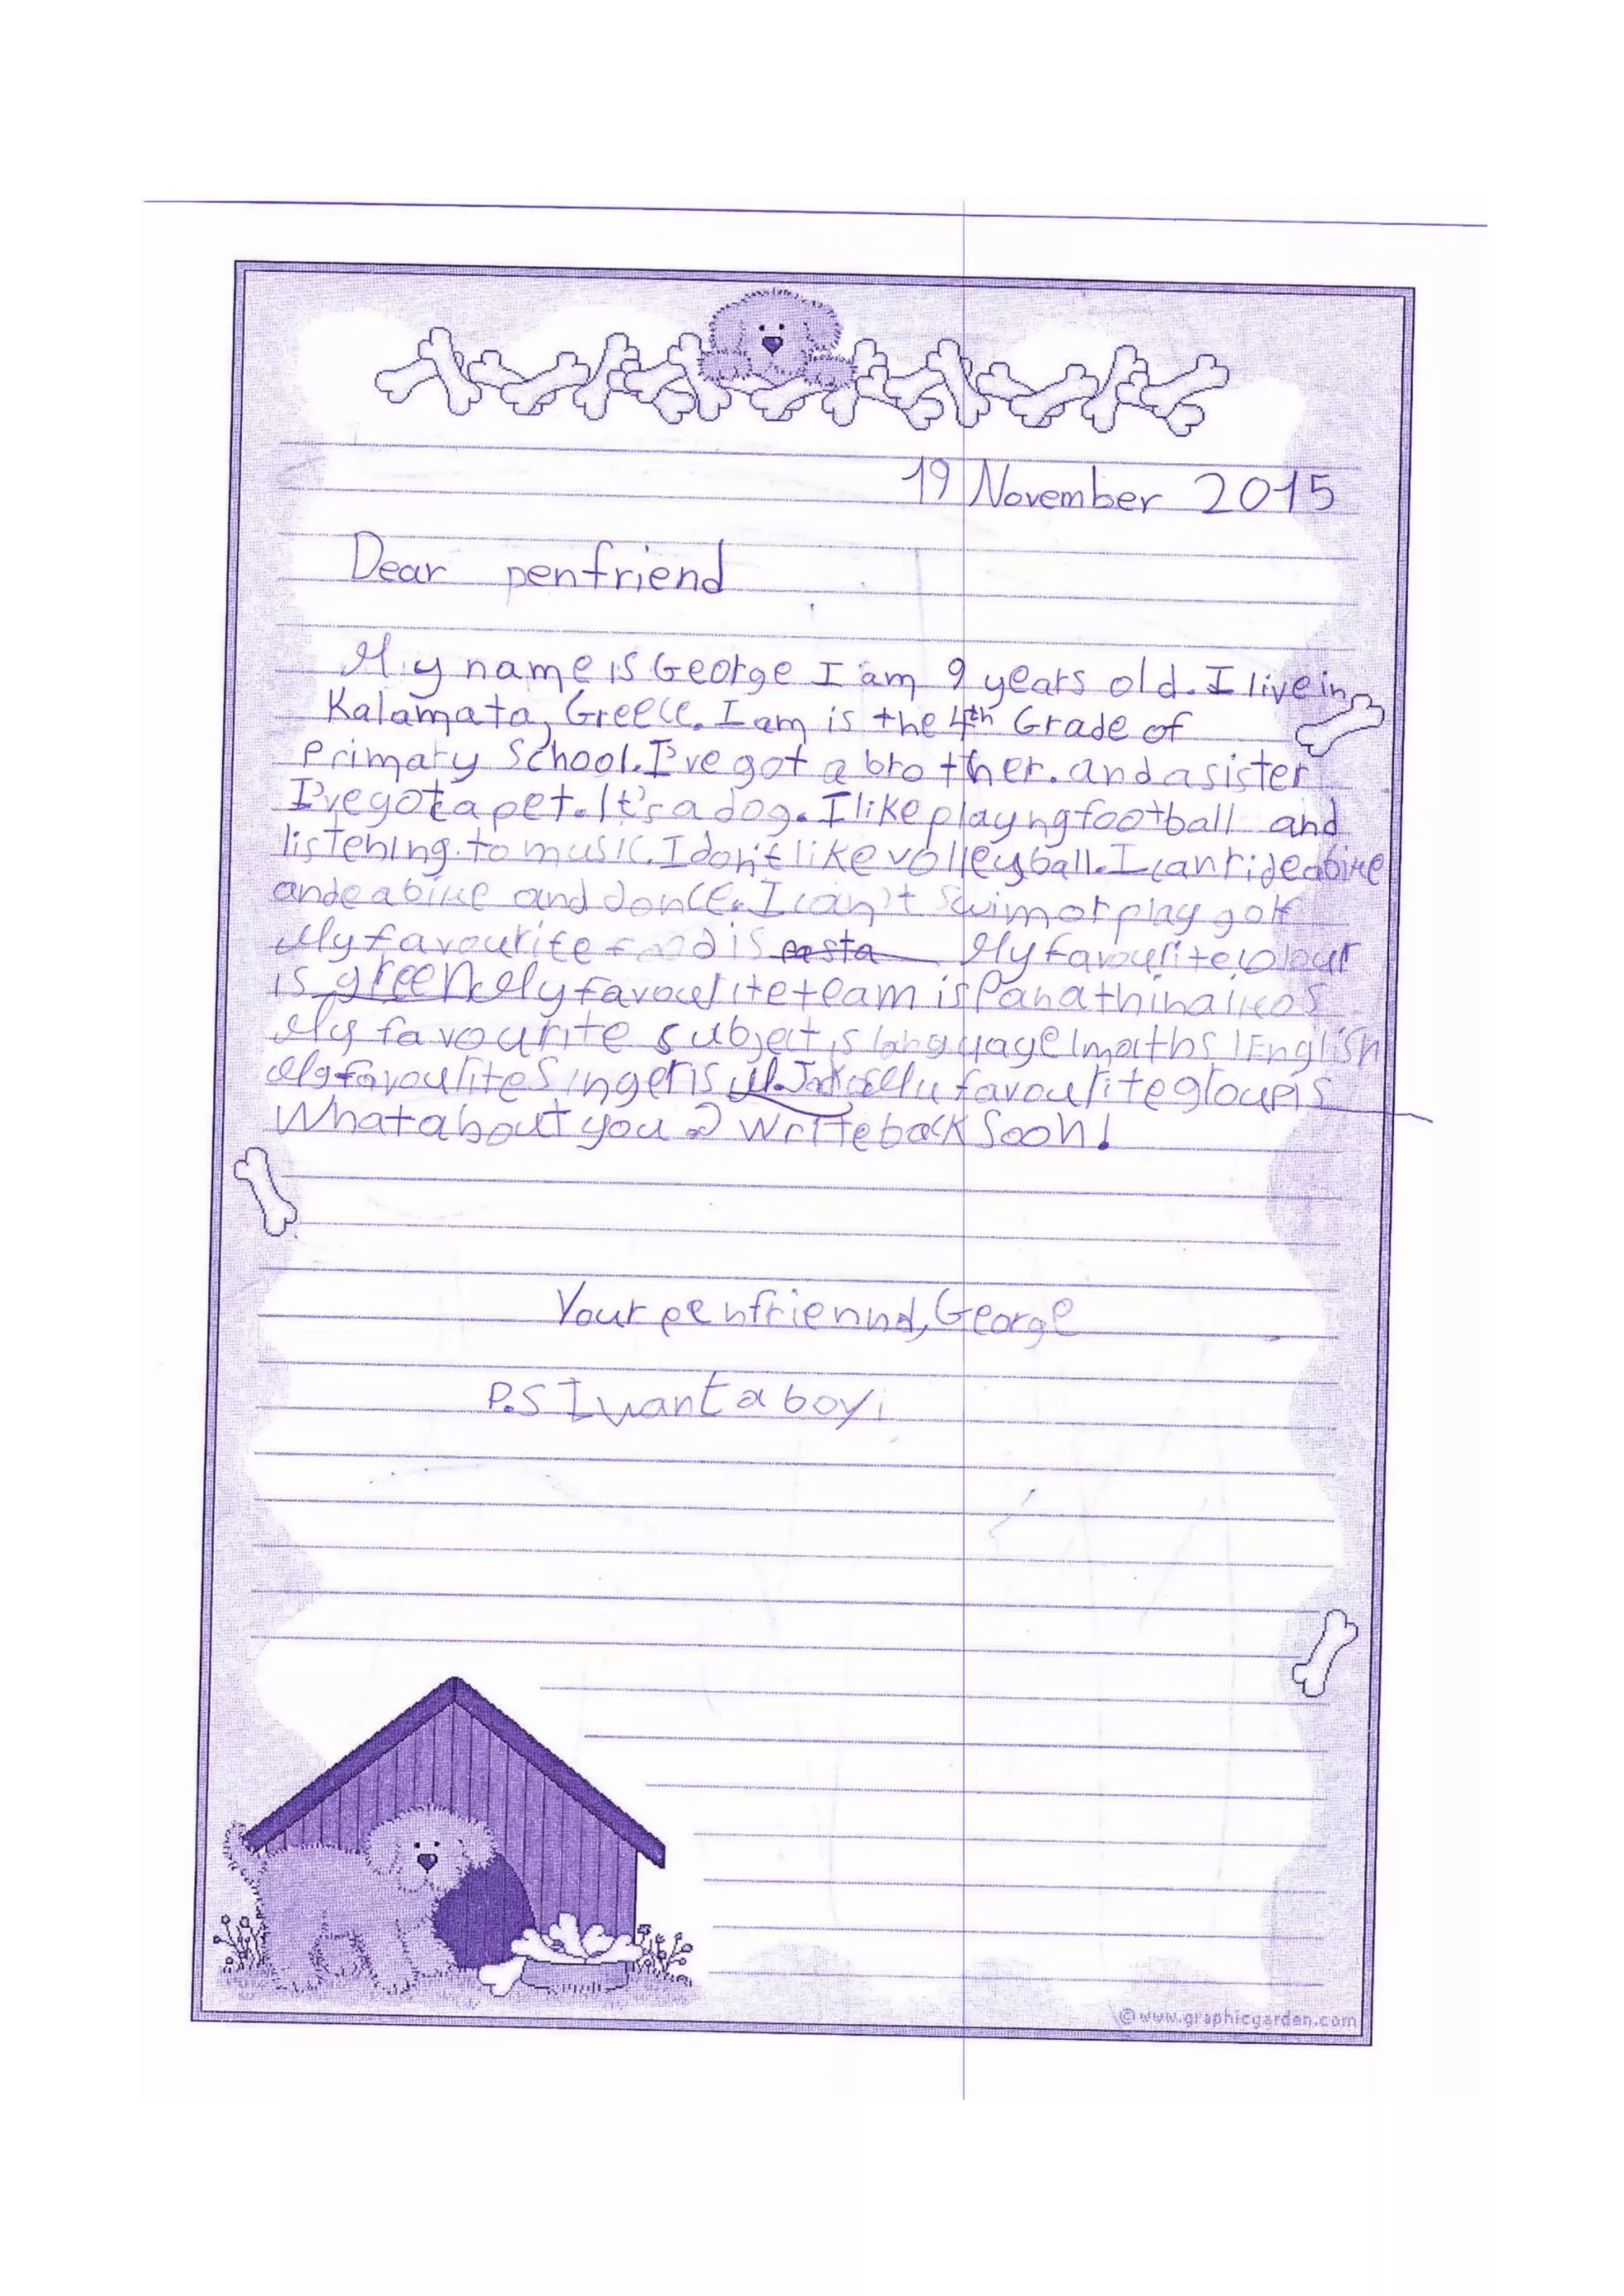 19 November 2015
Dear penfriend
My name is George I am 9 years old. I live in
Kalamata, Greece. I am is the 4th Grade of
Primary School. I've got a brother. and a sister
I've got a pet. It's a dog. I like playng football and
listening to music. I don't like volleyball. I can ride a bike
and dance. I can't swim or play golf
My favourite food is pasta My favourite colour
is green My favourite team is Panathinaikos
My favourite subject is language | maths | English
My favourite singer is M. My favourite group is
What about you? Write back soon!
Your penfriennd, George
P.S I want a boy
©www.graphicgarden.com